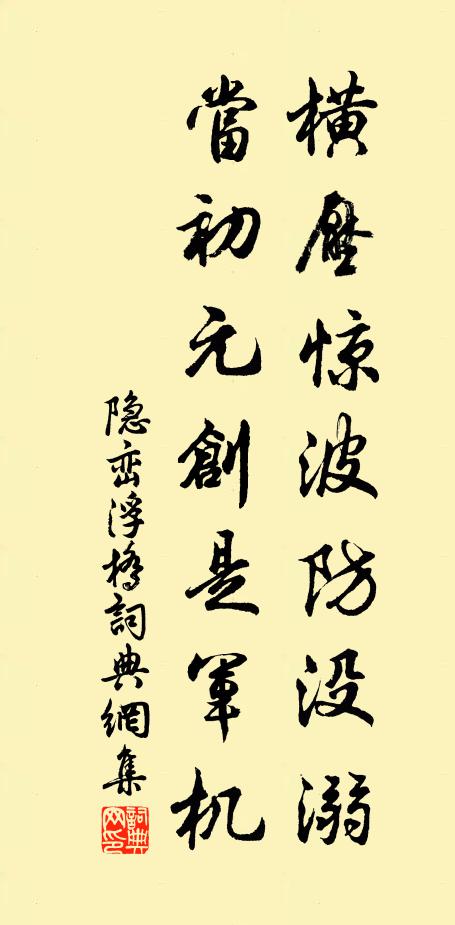 橫壓惊波防没溺
當初元創是軍机
隐峦浮橋詞典網集
詞典网印